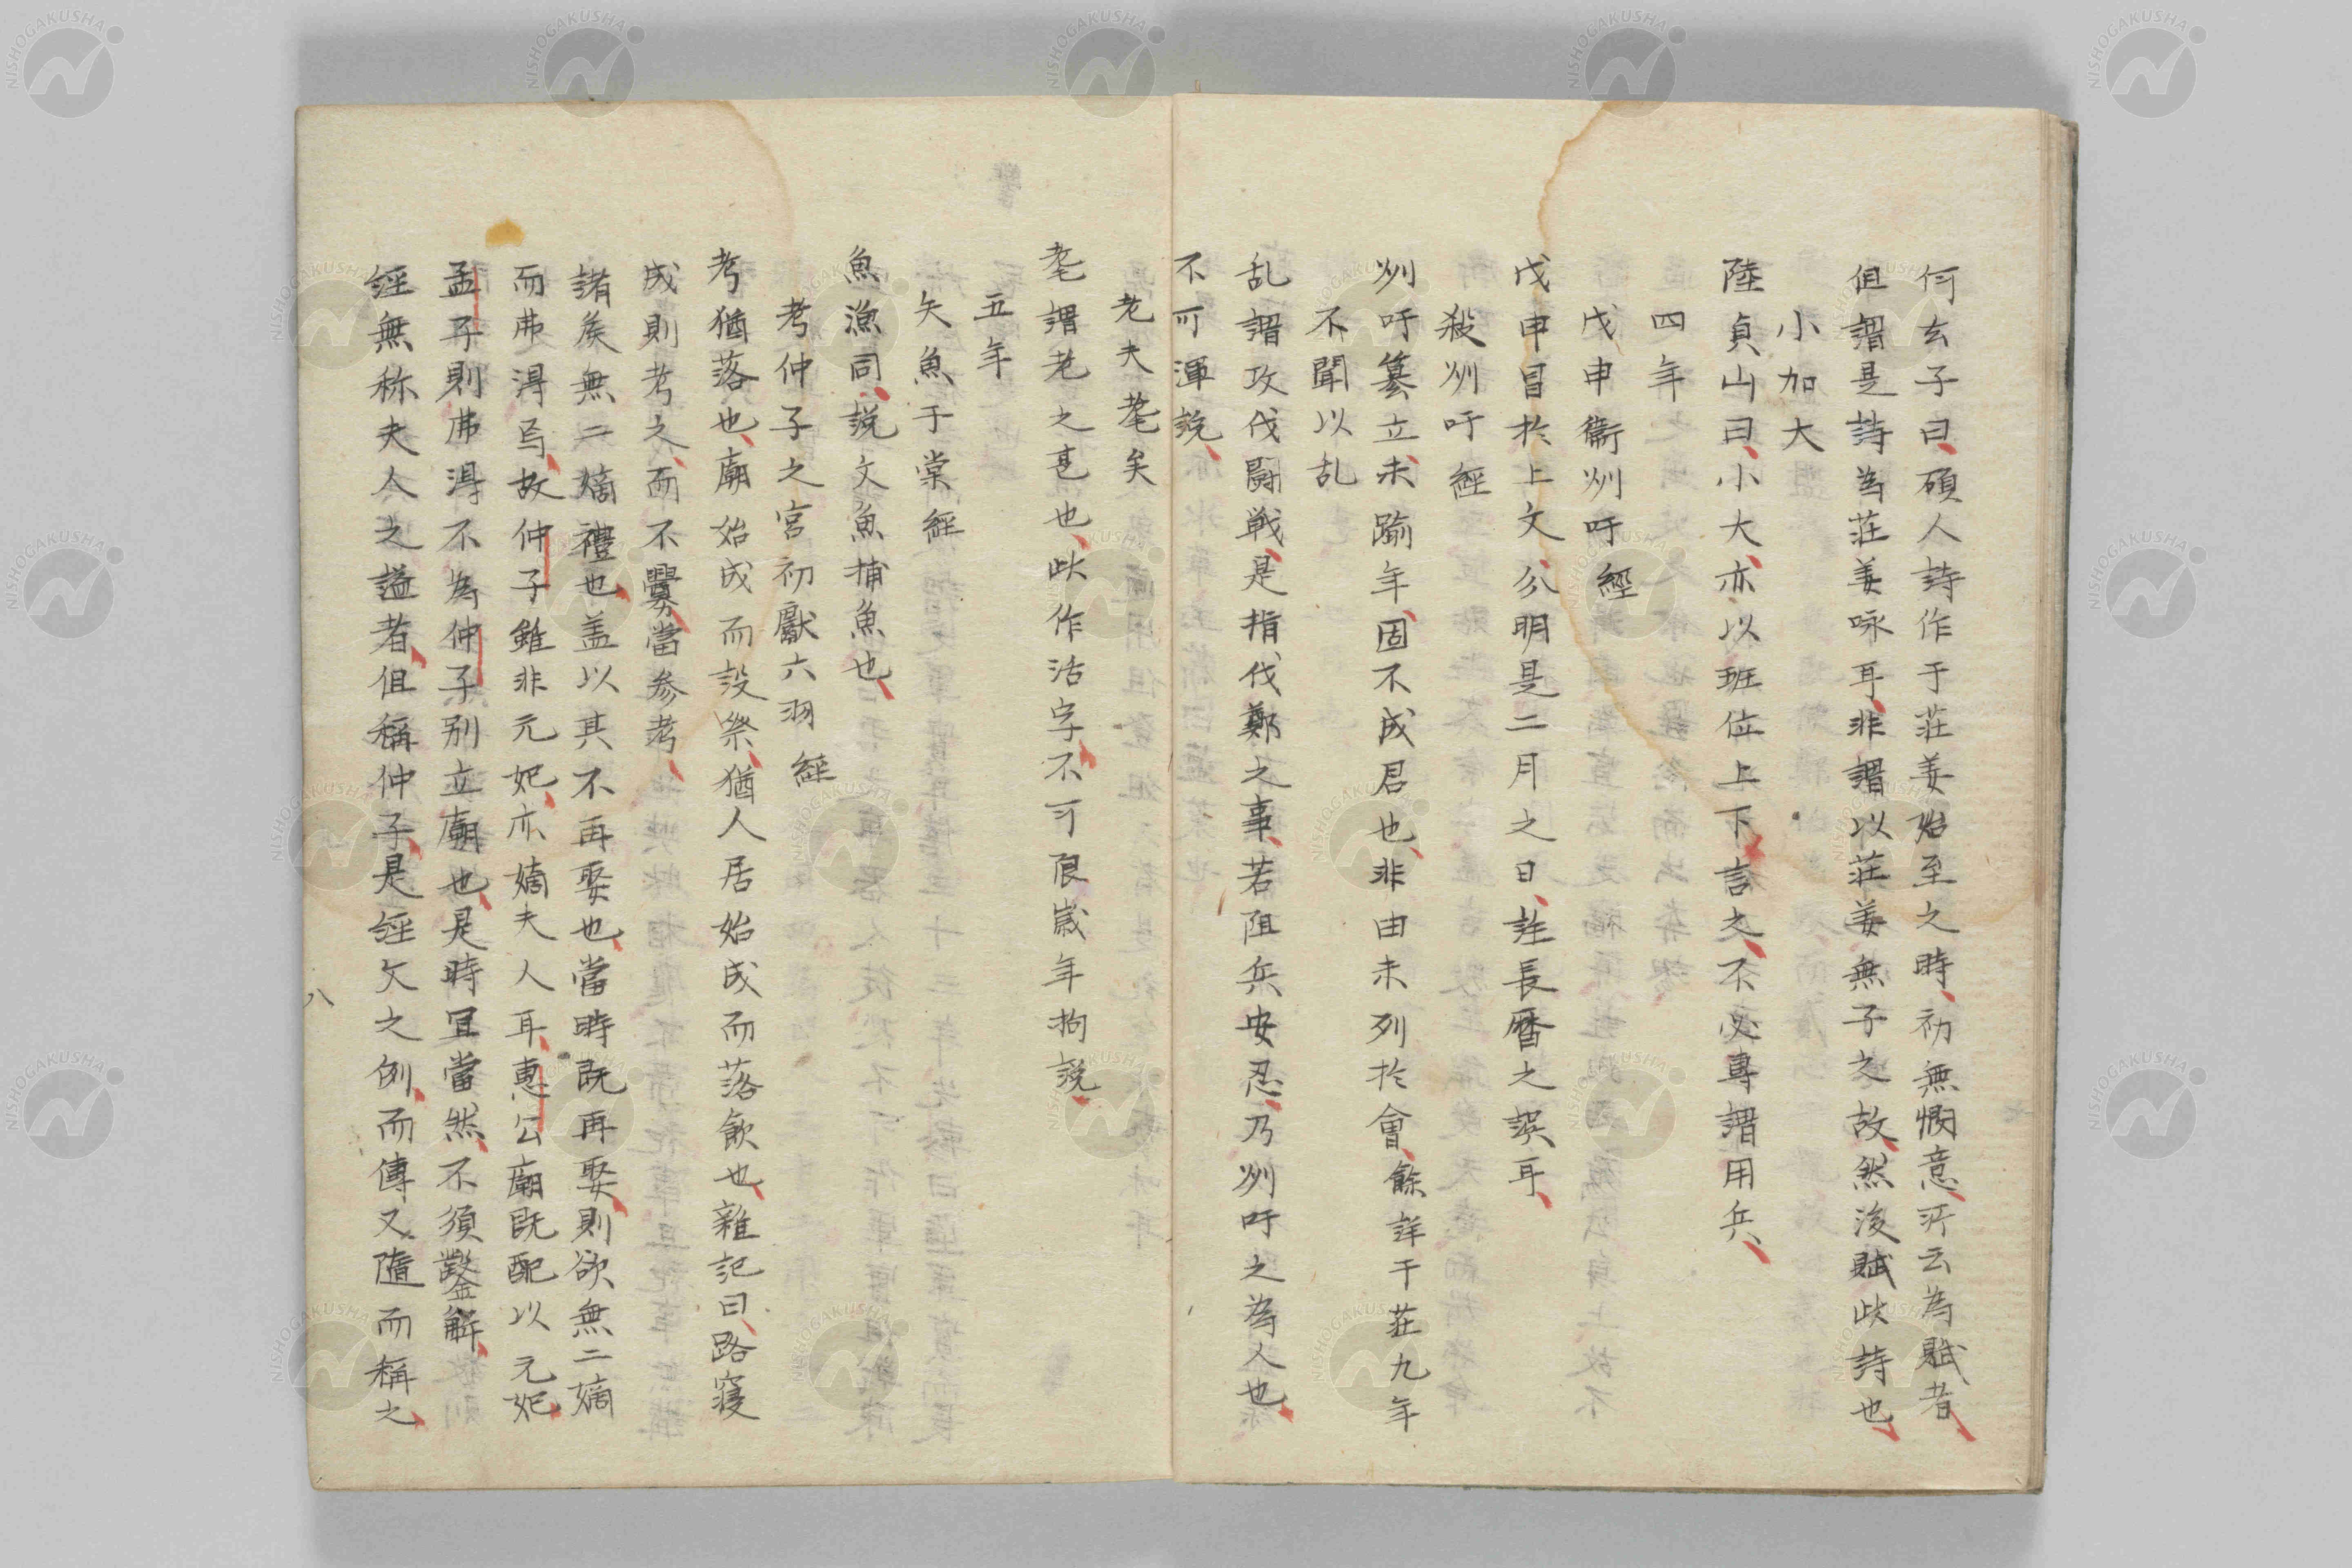 何玄子曰碩人詩作于莊姜始至之時初無憫意所云為賦者
但謂是詩為莊姜咏耳非謂以莊姜無子之故然後賦此詩也
小加大
陸貞山曰小大亦以班位上下言之不必專謂用兵
四年
戊申衞州吁 經
戊申冒於上文分明是二月之日註長暦之誤耳
殺州吁 經
州吁簒立未踰年固不成君也非由未列於會餘詳于莊九年
不聞以乱
乱謂攻伐鬪戦是指伐鄭之事若阻兵安忍乃州吁之為人也
不可渾説
老夫耄矣
耄謂老之甚也此作活字不可限歳年拘説
五年
矢魚于棠 經
魚漁同説文魚捕魚也
考仲子之宮初獻六羽 經
考猶落也廟始成而設祭猶人居始成而落飲也雜記曰路寝
成則考之而不釁當参考
諸矦無二嫡禮也盖以其不再娶也當時既再娶則欲無二嫡
而弗得焉故仲子雖非元妃亦嫡夫人耳惠公廟既配以元妃
孟子則弗得不為仲子别立廟也是時冝當然不須鑿解
經無称夫人之謚者但稱仲子是經文之例而傳又隨而稱之
八
NISHOGAKUSHA